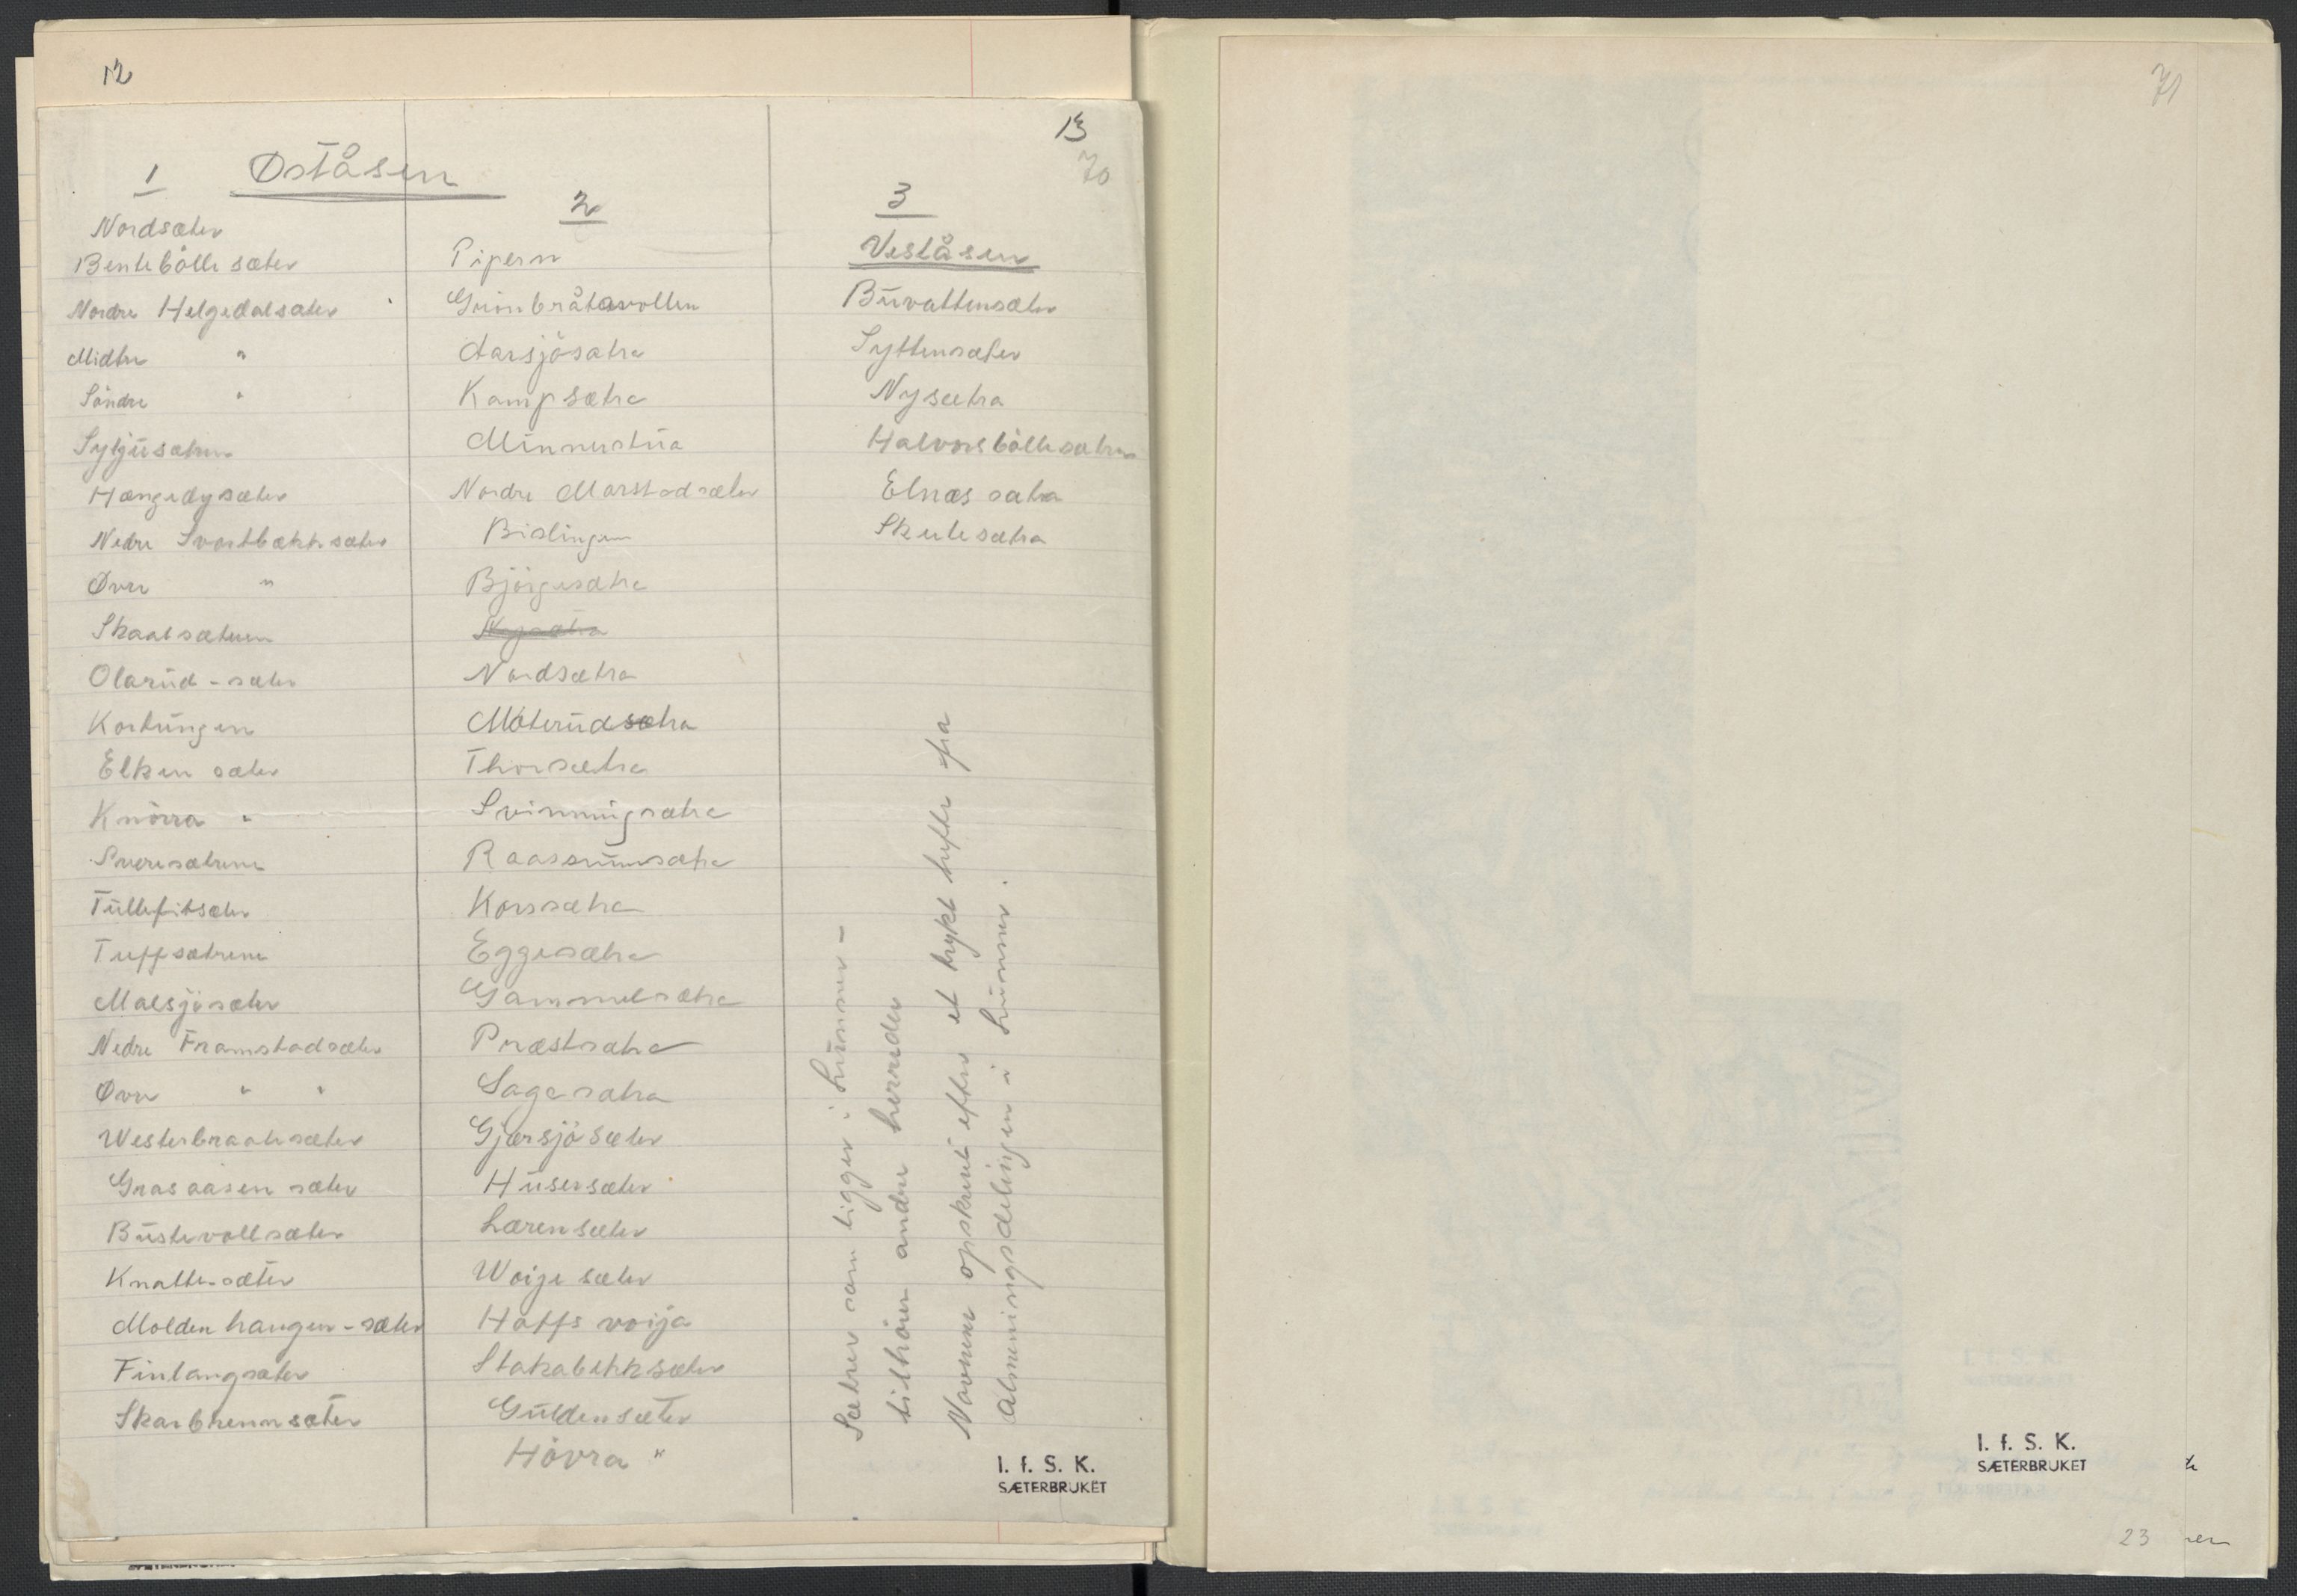 12
13
70
1 Øståsen
Nordsæter
Bentebölle sæter
Nordre Helgedalsæter
Midtre "
Söndre "
Sytjusætren
Hængedysæter
Nedre Svartbækksæter
Øvre "
Skaalsæteren
Olarud-sæter
Kortungen
Elken sæter
Knörra "
Sveresætrene
Tullefitsæter
Tuffsætrene
Malsjösæter
Nedre Framstadsæter
Øvre " "
Westerbraatesæter
Grasaasen sæter
Bustevollsæter
Knatten-sæter
Moldenhaugen-sæter
Finlangsæter
Skarbrennsæter
2
Pipern
Grönbråtavollen
Aarsjösætra
Kampsætra
Minnestua
Nordre Marstadsæter
Bislingen
Björgesætra
Nysætra
Nordsætra
Möterudsætra
Thorsætra
Svinningsætra
Raassumsætra
Korssætra
Eggesætra
Gammelsætra
Præstsætra
Sagesætra
Gjærsjösæter
Husersæter
Lærensæter
Woige sæter
Hoffs voija
Stakabekksæter
Guldensæter
Hövra "
3
Veståsen
Buvattensæter
Syttensæter
Nysætra
Halvorsböllesætren
Elnæs sætra
Skutesætra
Sætrer som ligger i Lunner –
tilhörer andre herreder
Navnene opskrevet efter et trykt hefte fra
Almenningsdelingen i Lunner.
I. f. S. K.
SÆTERBRUKET
71
I. f. S. K.
SÆTERBRUKET
23